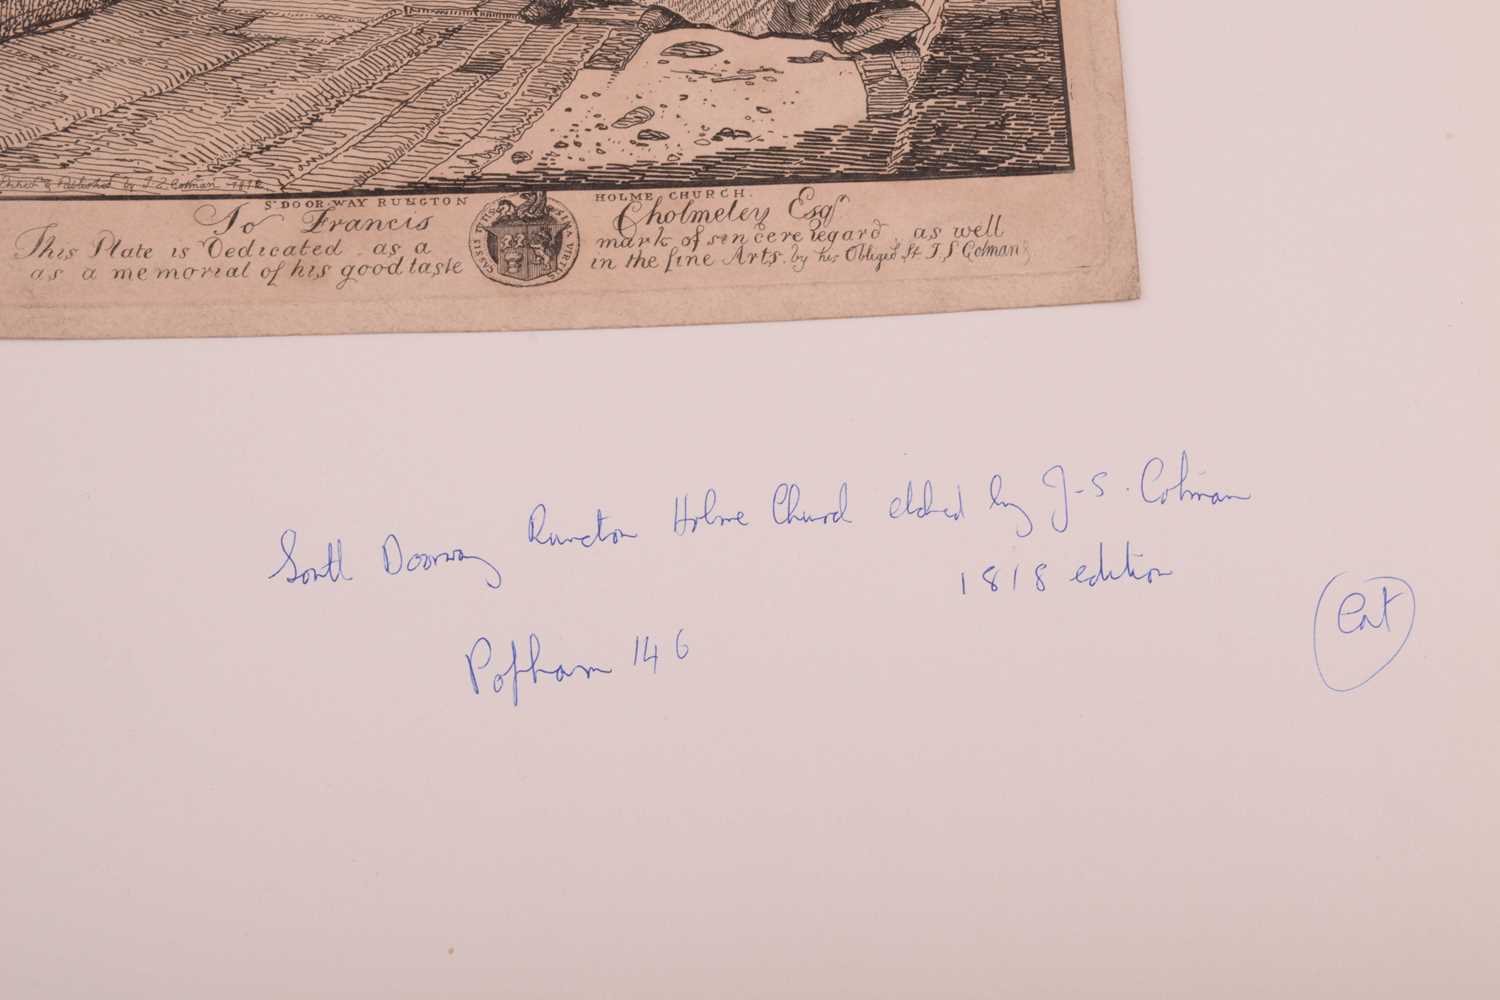 Etched & Published by J. S. Cotman 1812.
Sᵗʰ DOOR-WAY RUNGTON HOLME CHURCH.
To Francis Cholmeley Esqʳ
This Plate is Dedicated as a mark of sincere regard, as well
as a memorial of his good taste in the fine Arts. by his Obliged Sᵗ J. S Cotman
CASSIS TUTIS SIMA VIRTUS
South Doorway Runcton Holme Church etched by J-S. Cotman
1818 edition
Popham 146
Cat